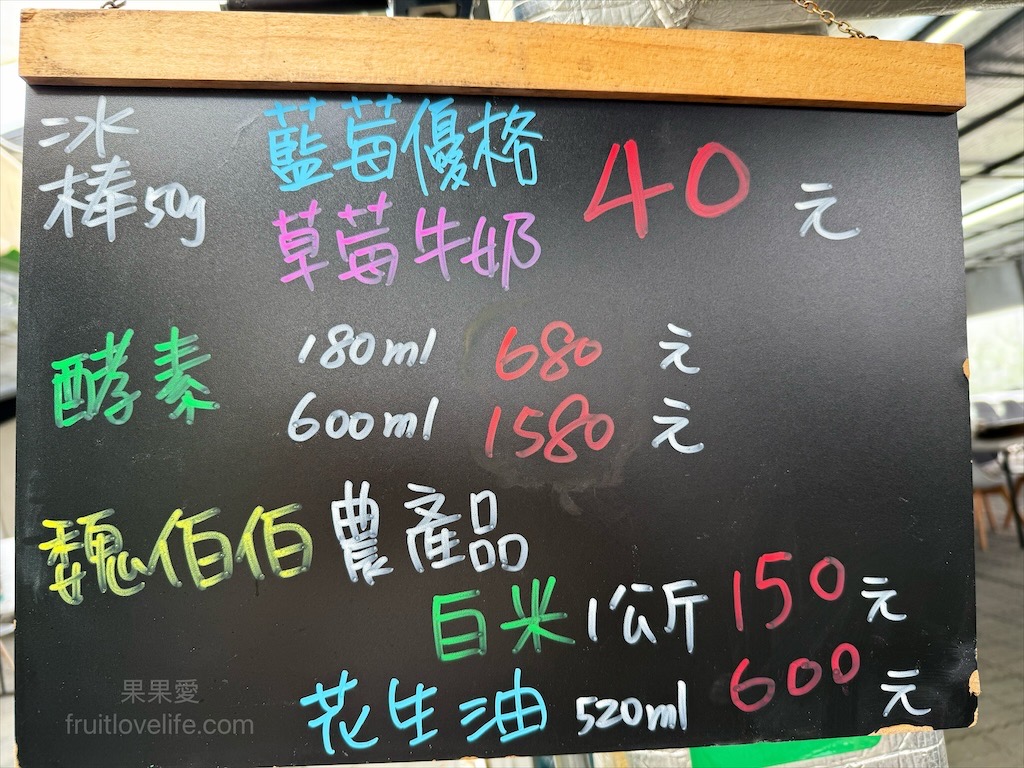 冰棒50g 藍莓優格 40元
草莓牛奶
酵素 180ml 680元
600ml 1580元
魏伯伯 農產品
白米 1公斤 150元
花生油 520ml 600元
果果愛
fruitlovelife.com